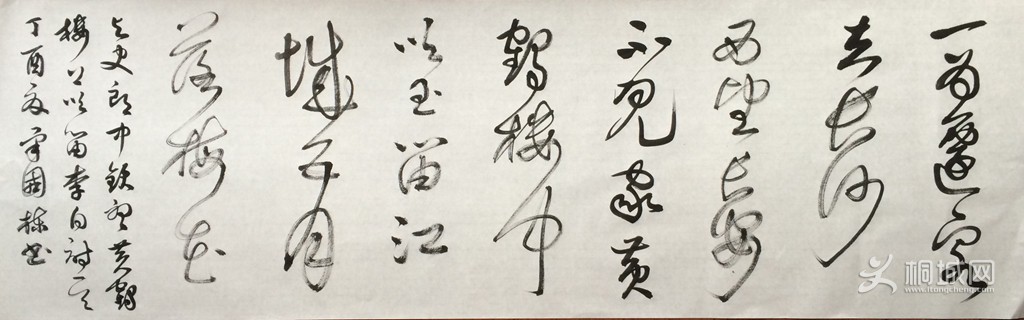 一为迁客
去长沙
西望长安
不见家黄
鹤楼中
吹玉笛江
城五月
落梅花
与史郎中钦听黄鹤
楼上吹笛李白诗一首
丁酉夏
书
桐城网
www.itongcheng.com